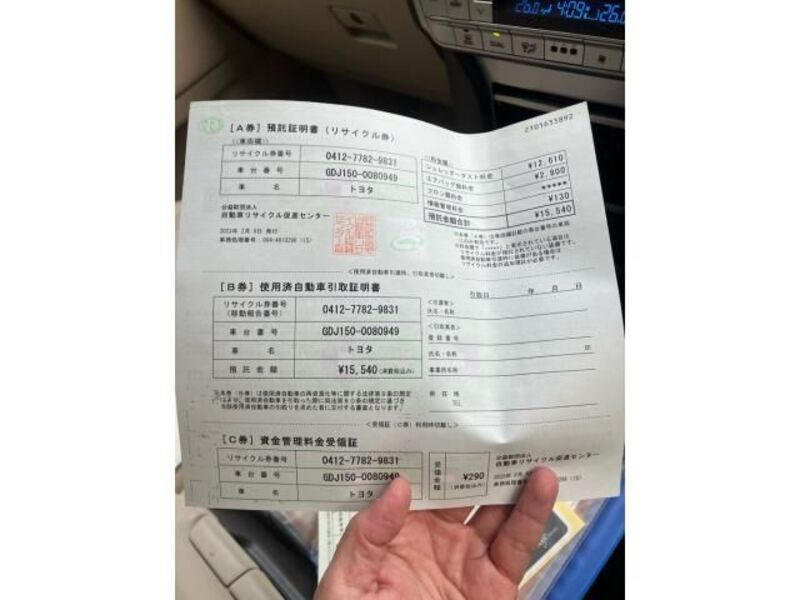 26.0 4:09 26.0
DUAL
2101633892
[A券] 預託証明書 (リサイクル券)
(車両欄)
リサイクル券番号 0412-7782-9831
車台番号 GDJ150-0080949
車名 トヨタ
公益財団法人
自動車リサイクル促進センター
シュレッダーダスト料金 ¥12,610
エアバッグ類料金 ¥2,800
フロン類料金 *****
情報管理料金 ¥130
預託金額合計 ¥15,540
<使用済自動車引渡時、引取業者切離し>
[B券] 使用済自動車引取証明書
引取日 年 月 日
リサイクル券番号
(移動報告番号) 0412-7782-9831
車台番号 GDJ150-0080949
車名 トヨタ
預託金額 ¥15,540 (消費税込み)
<引渡者>
氏名・名称
<引取業者>
登録番号
氏名・名称 印
事業所名称
所在地
TEL
<受領証 (C券) 利用時切離し>
[C券] 資金管理料金受領証
リサイクル券番号 0412-7782-9831
車台番号 GDJ150-0080949
車名 トヨタ
受領金額 ¥290
(消費税込み)
公益財団法人
自動車リサイクル促進センター